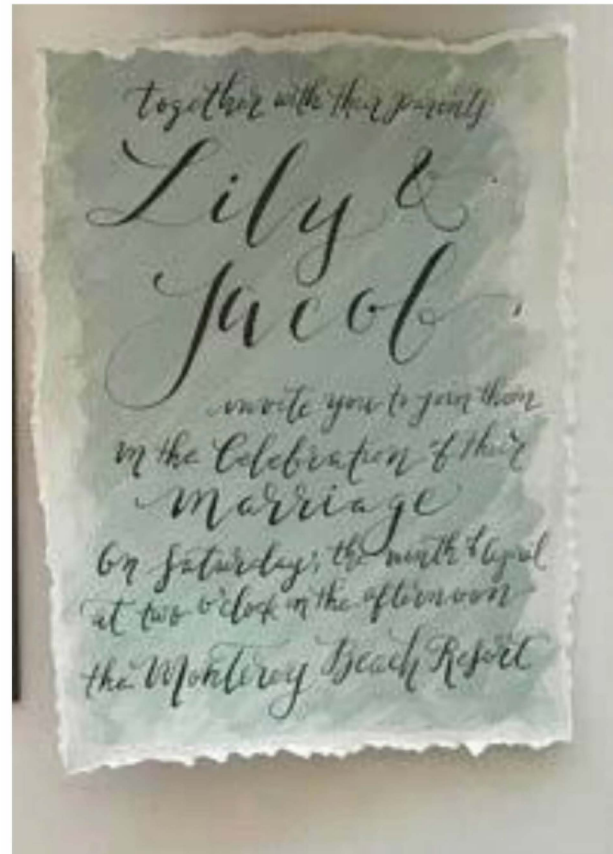 together with their parents
Lily &
Jacob
invite you to join them
in the Celebration of their
marriage
On Saturday, the ninth of April
at two o'clock in the afternoon
the Monterey Beach Resort